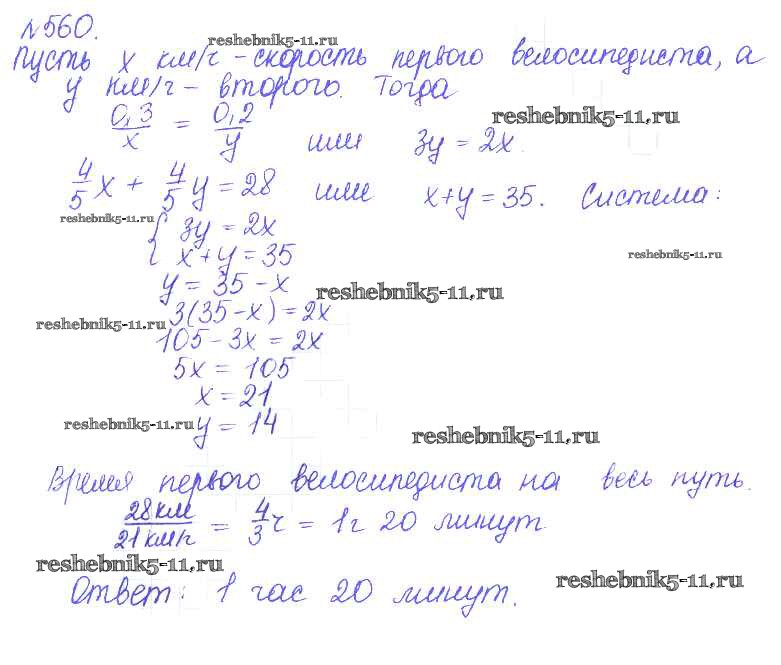 №560.
reshebnik5-11.ru
Пусть x км/ч - скорость первого велосипедиста, а
y км/ч - второго. Тогда
reshebnik5-11.ru
0,3/x = 0,2/y или 3y = 2x.
4/5 x + 4/5 y = 28 или x + y = 35. Система:
reshebnik5-11.ru
{ 3y = 2x
x + y = 35
reshebnik5-11.ru
y = 35 - x
reshebnik5-11.ru
3(35 - x) = 2x
reshebnik5-11.ru
105 - 3x = 2x
5x = 105
x = 21
reshebnik5-11.ru
y = 14
reshebnik5-11.ru
Время первого велосипедиста на весь путь.
28км/21км/ч = 4/3 ч = 1г 20 минут
reshebnik5-11.ru
reshebnik5-11.ru
Ответ: 1 час 20 минут.